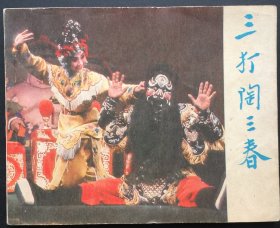 三打陶三春